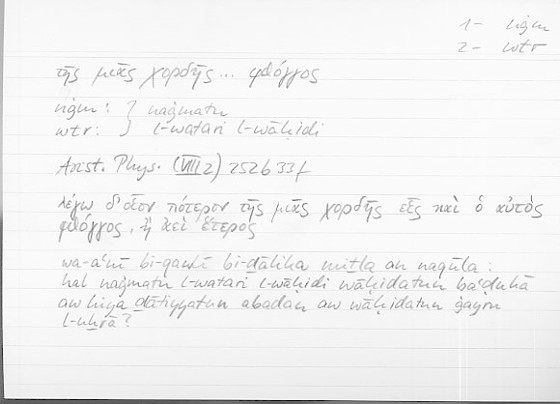 1 - nġm
2 - wtr
τῆς μιᾶς χορδῆς... φθόγγος
nġm: } naġmatu
wtr: } l-watari l-wāḥidi
Arist. Phys. (VIII 2) 252b33f
λέγω δ' οἷον πότερον τῆς μιᾶς χορδῆς εἷς καὶ ὁ αὐτὸς
φθόγγος, ἢ ἀεὶ ἕτερος
wa-aʿnī bi-qawlī bi-ḏālika miṯla an naqūla:
hal naġmatu l-watari l-wāḥidi wāḥidatun baʿduhā
aw hiya ḏātiyyatun abadan aw wāḥidatun ġayru
l-uḫrā?